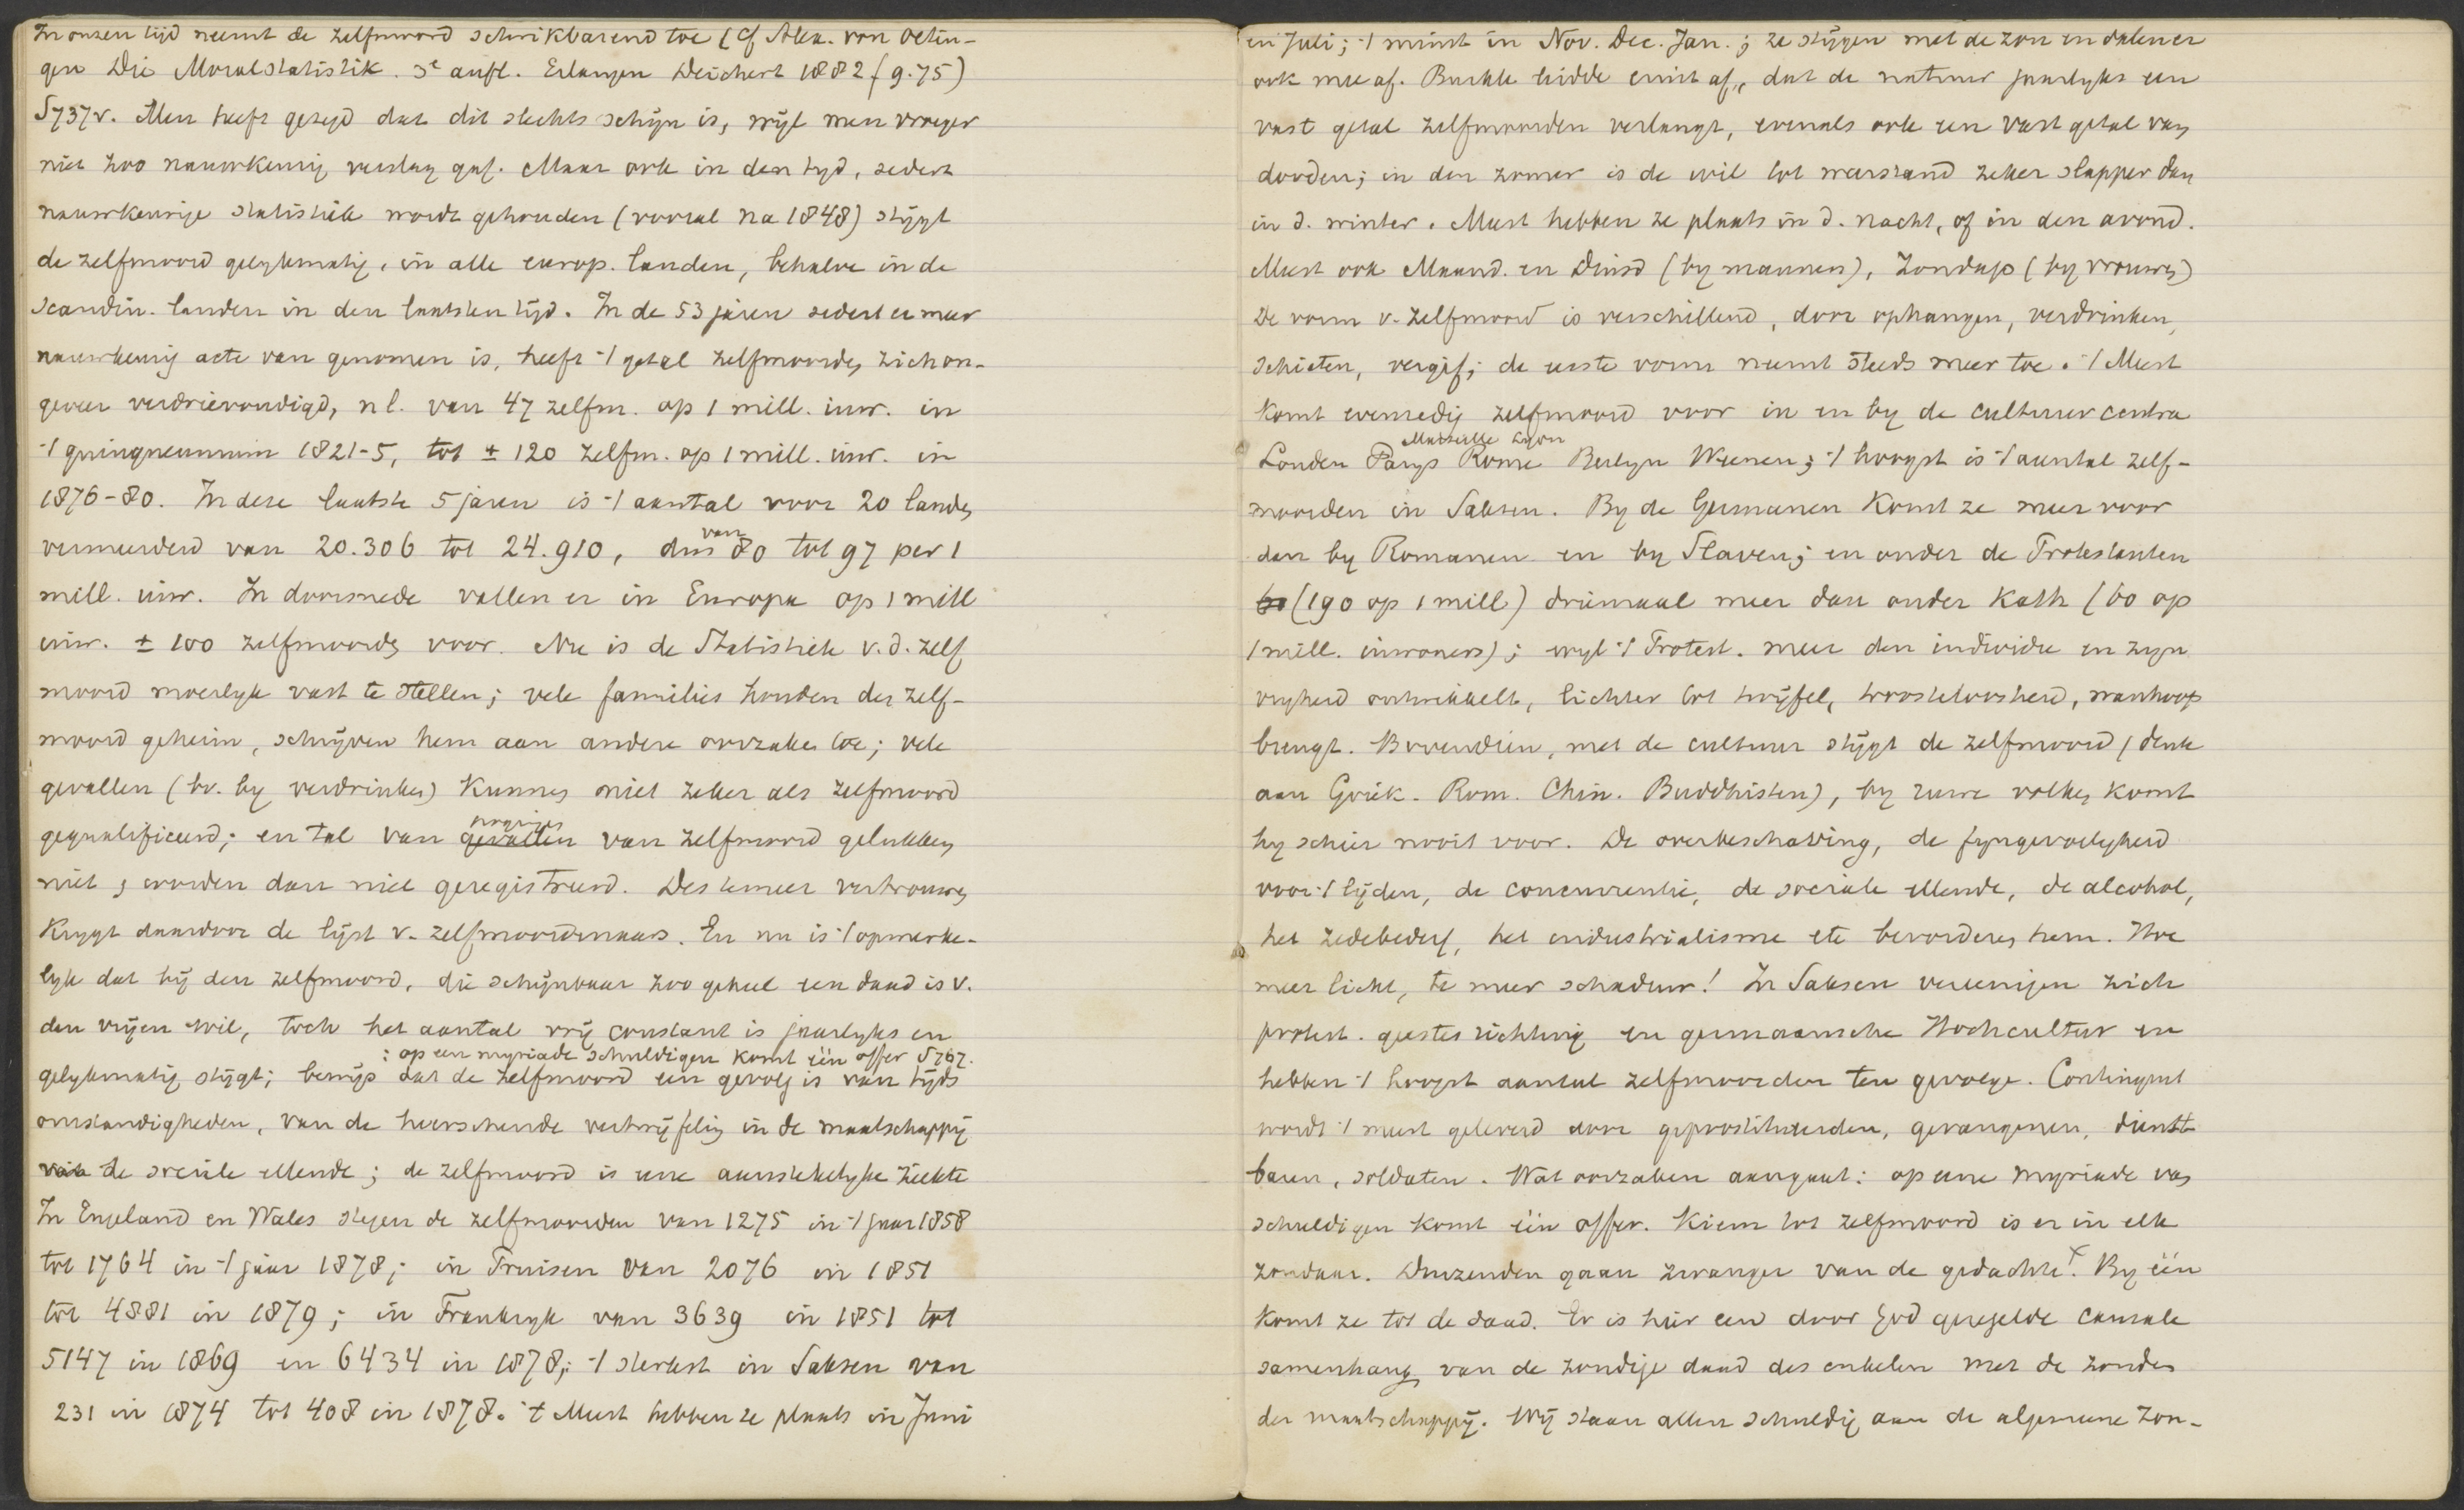 In onzen tijd neemt de zelfmoord schrikbarend toe (cf Alex. von Oetin-
gen Die Moralstatistik. 3e aufl. Erlangen Deichert 1882 (9.75)
S737v. Men heeft gezegd dat dit slechts schijn is, wijl men vroeger
niet zoo nauwkeurig verslag gaf. Maar ook in den tyd, sedert
nauwkeurige statistiek wordt gehouden (vooral na 1848) stijgt
de zelfmoord gelykmatig, in alle europ. landen, behalve in de
scandin. landen in den laatsten tijd. In de 53 jaren sedert er meer
nauwkeurig acte van genomen is, heeft 't getal zelfmoorden zich on-
geveer verdrievoudigd, nl. van 47 zelfm. op 1 mill. inw. in
't quinquennium 1821-5, tot ± 120 zelfm. op 1 mill. inw. in
1876-80. In deze laatste 5 jaren is 't aantal voor 20 landen
vermeerderd van 20.306 tot 24.910, dus van 80 tot 97 per 1
mill. inw. In doorsnede vallen er in Europa op 1 mill
inw. ± 100 zelfmoorden voor. Nu is de Statistiek v.d. zelf
moord moeilyk vast te stellen; vele families houden den zelf-
moord geheim, schrijven hem aan andere oorzaken toe; vele
gevallen (bv. by verdrinken) kunnen niet zeker als zelfmoord
gequalificeerd; en tal van gevallen pogingen van zelfmoord gelukken
niet, worden dan niet geregistreerd. Des temeer vertrouwen
krygt daardoor de lijst v. zelfmoordenaars. En nu is 't opmerke-
lyk dat bij den zelfmoord, die schijnbaar zoo geheel een daad is v.
den vrijen wil, toch het aantal vrij constant is jaarlyks en
: op een myriade schuldigen komt één offer S767.
gelykmatig stijgt; bewijs dat de zelfmoord een gevolg is van tijds
omstandigheden, van de heerschende vertwijfeling in de maatschappij
van de sociale ellende; de zelfmoord is eene aanstekelyke ziekte
In Engeland en Wales stegen de zelfmoorden van 1275 in 't jaar 1858
tot 1764 in 't jaar 1878; in Pruisen van 2076 in 1851
tot 4881 in 1879; in Frankryk van 3639 in 1851 tot
5147 in 1869 en 6434 in 1878; 't sterkst in Saksen van
231 in 1874 tot 408 in 1878. 't Meest hebben ze plaats in Juni
en Juli; 't minst in Nov. Dec. Jan.; ze stijgen met de zon en dalen er
ook mee af. Buckle leidde eruit af, dat de natuur jaarlyks een
vast getal zelfmoorden verlangt, evenals ook een vast getal van
dooden; in den zomer is de wil tot weerstand zeker slapper dan
in d. winter. Meest hebben ze plaats in d. nacht, of in den avond.
Meest ook Maand. en Dinsd (by mannen), Zondags (by vrouwen)
De vorm v. zelfmoord is verschillend, door ophangen, verdrinken,
schieten, vergif; de eerste vorm neemt steeds meer toe. 't Meest
komt evenredig zelfmoord voor in en by de cultuurcentra
Marseille Lyon
Londen Parys Rome Berlyn Weenen; 't hoogst is 't aantal zelf-
moorden in Saksen. By de Germanen komt ze meer voor
dan by Romanen en by Slaven; en onder de Protestanten
(190 op 1 mill) driemaal meer dan onder Kath (60 op
1 mill. inwoners); wyl 't Protest. meer den individu in zyn
vryheid ontwikkelt, lichter tot twijfel, troosteloosheid, wanhoop
brengt. Bovendien, met de cultuur stijgt de zelfmoord (denk
aan Griek. Rom. Chin. Buddhisten), by ruwe volken komt
hy schier nooit voor. De overbeschaving, de fyngevoeligheid
voor 't lijden, de concurrentie, de sociale ellende, de alcohol,
het zedebederf, het industrialisme etc bevorderen hem. Hoe
meer licht, te meer schaduw! In Saksen vereenigen zich
protest. geestesrichting en germaansche Hochcultur en
hebben 't hoogst aantal zelfmoorden ten gevolge. Contingent
wordt 't meest geleverd door geprostitueerden, gevangenen, dienst
baren, soldaten. Wat oorzaken aangaat: op eene myriade van
schuldigen komt één offer. Kiem tot zelfmoord is er in elk
zondaar. Duizenden gaan zwanger van de gedachte. X By één
komt ze tot de daad. Er is hier een door God geregelde causale
samenhang van de zondige daad des enkelen met de zonden
der maatschappij. Wij staan allen schuldig aan de algemeene zon-